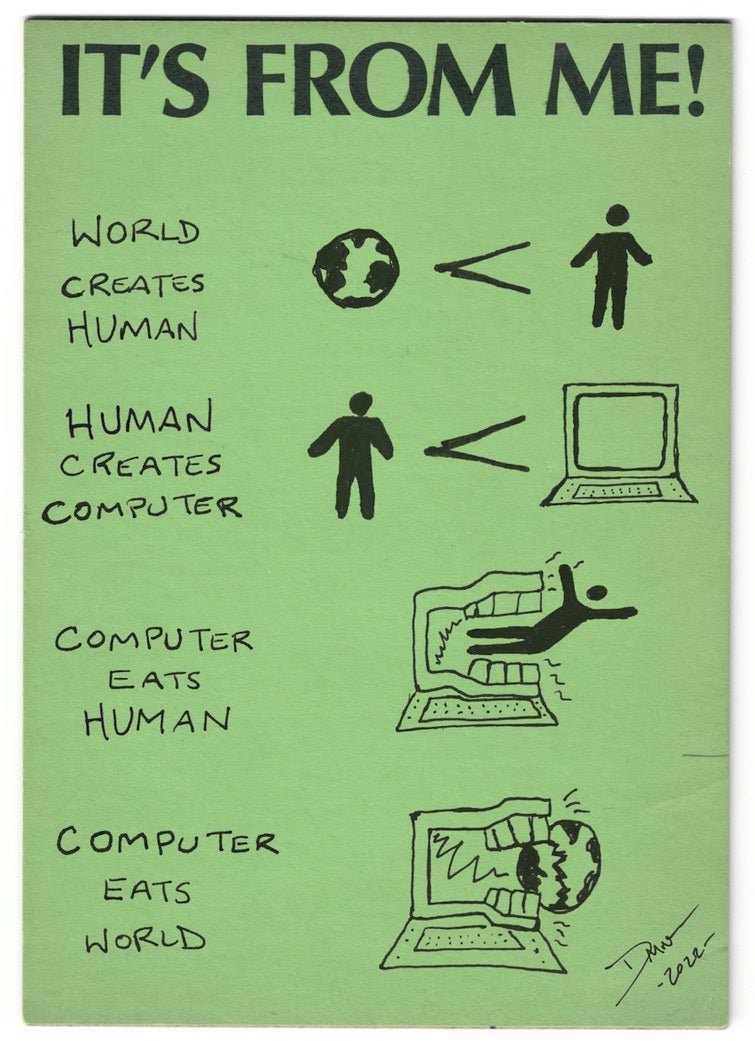 IT'S FROM ME!
WORLD
CREATES
HUMAN
HUMAN
CREATES
COMPUTER
COMPUTER
EATS
HUMAN
COMPUTER
EATS
WORLD
-2022-